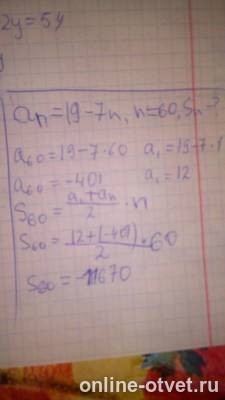 2y=54
aₙ=19-7n, n=60, Sₙ-?
a₆₀=19-7·60 a₁=19-7·1
a₆₀=-401 a₁=12
S₆₀=(a₁+aₙ)/2·n
S₆₀=(12+(-401))/2·60
S₆₀=-11670
online-otvet.ru